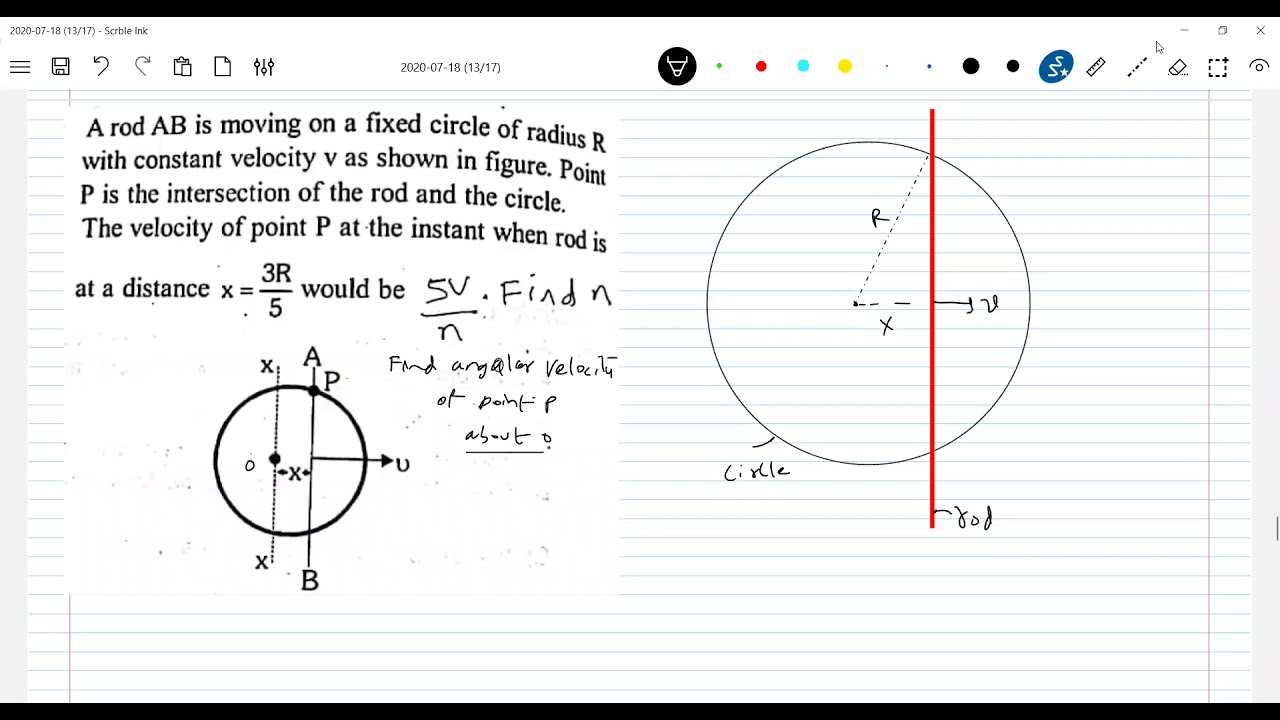 2020-07-18 (13/17) - Scrble Ink
2020-07-18 (13/17)
A rod AB is moving on a fixed circle of radius R
with constant velocity v as shown in figure. Point
P is the intersection of the rod and the circle.
The velocity of point P at the instant when rod is
at a distance x = 3R/5 would be 5V/n . Find n
Find angular velocity
of point P
about o
X
A
P
O
X
υ
X
B
R
X
v
Circle
rod